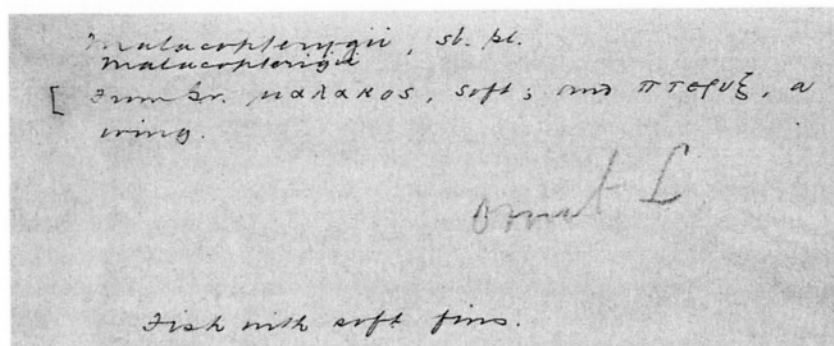 Malacopterygii, sb. pl.
Malacopterigii
[ From Gr. μαλακος, soft; and πτερυξ, a
wing.
Omit L
Fish with soft fins.